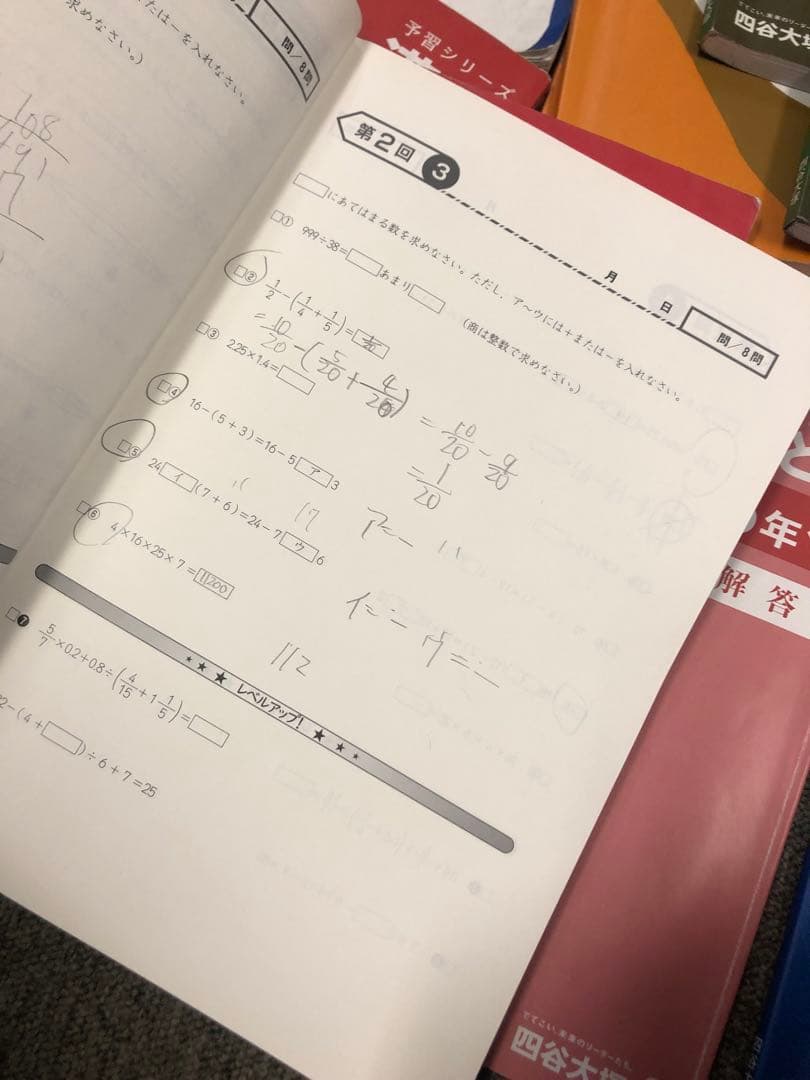 または－を入れなさい。
求めなさい。)
問/8問
108
予習シリーズ
四谷大塚
第2回 3
月 日
問/8問
□にあてはまる数を求めなさい。ただし、ア～ウには＋または－を入れなさい。
① 999÷38=□あまり□ (商は整数で求めなさい。)
② 1/2－(1/4＋1/5)=1/20
=10/20－(5/20＋4/20)=10/20－9/20
=1/20
③ 225×1.4=□
④ 16－(5＋3)=16－5ア3
ア=－
⑤ 24イ(7＋6)=24－7ウ6
17
イ=－ ウ=－
⑥ 4×16×25×7=11200
112
★★★ レベルアップ! ★★★
⑦ 5/7×0.2＋0.8÷(4/15＋1 1/5)=□
－(4＋□)÷6＋7=25
年
解答
でてこい、未来のリーダーたち。
四谷大